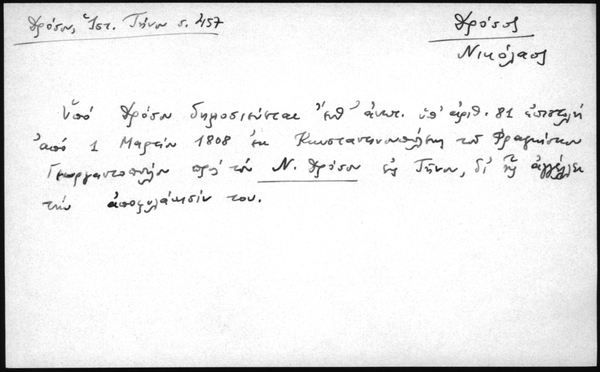 Δρόσου, Ἱστ. Τήνου σ. 457
Δρόσος
Νικόλαος
Ὑπό Δρόσου δημοσιεύεται ἔνθ' ἀνωτ. ὑπ' ἀριθ. 81 ἐπιστολή
ἀπό 1 Μαρτίου 1808 ἐκ Κωνσταντινουπόλεως τοῦ Φραγκίσκου
Γεωργαντοπούλου πρός τόν Ν. Δρόσον εἰς Τῆνον, δι' ἧς ἀγγέλλει
τήν ἀποφυλάκισίν του.